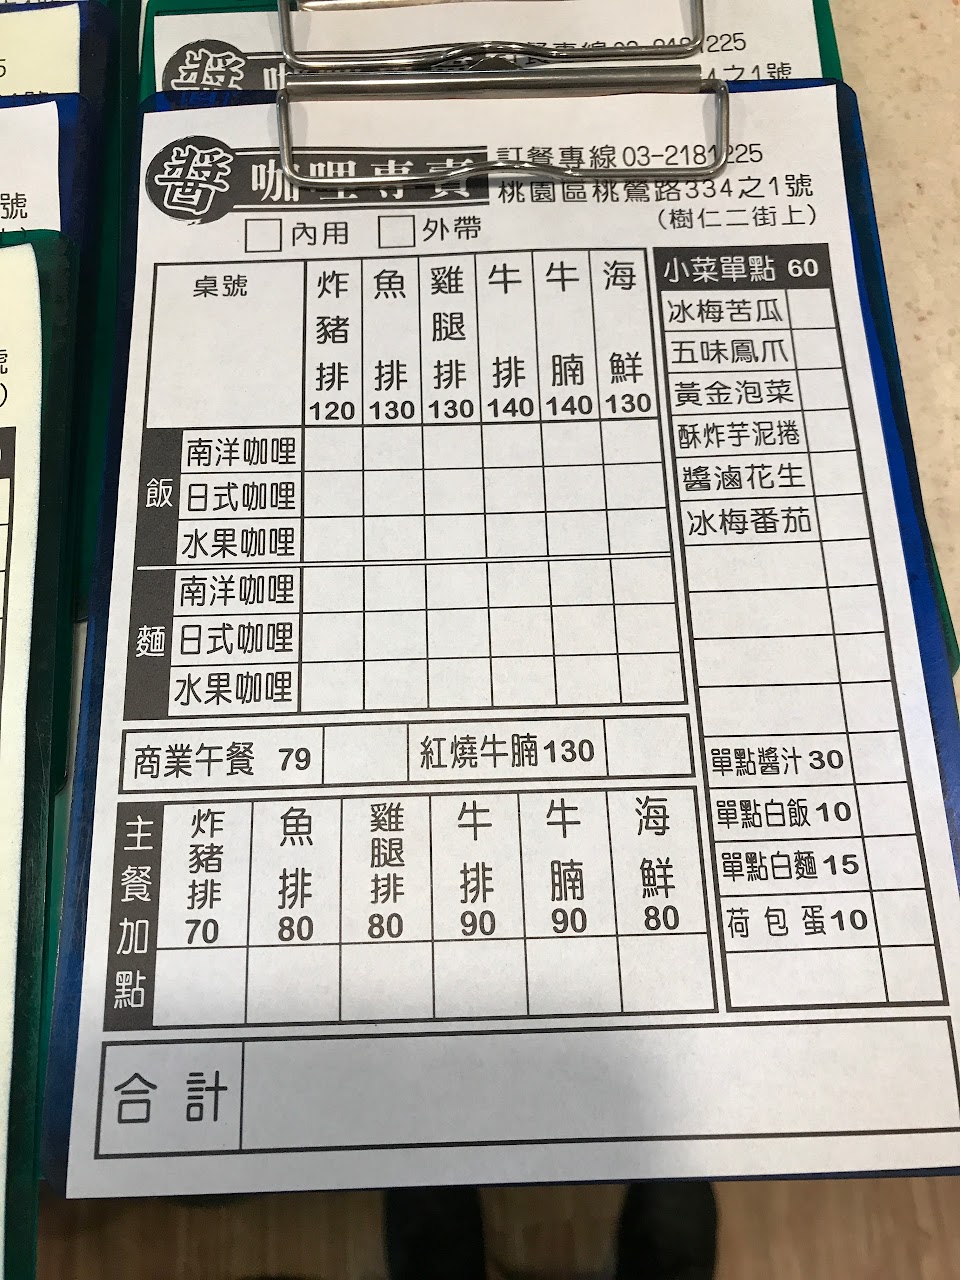 醬 咖哩專賣
訂餐專線03-2181225
桃園區桃鶯路334之1號
(樹仁二街上)
內用 外帶
桌號 炸豬排 魚排 雞腿排 牛排 牛腩 海鮮
120 130 130 140 140 130
飯
南洋咖哩
日式咖哩
水果咖哩
麵
南洋咖哩
日式咖哩
水果咖哩
商業午餐 79 紅燒牛腩130
主餐加點
炸豬排 魚排 雞腿排 牛排 牛腩 海鮮
70 80 80 90 90 80
小菜單點 60
冰梅苦瓜
五味鳳爪
黃金泡菜
酥炸芋泥捲
醬滷花生
冰梅番茄
單點醬汁30
單點白飯10
單點白麵15
荷包蛋10
合計